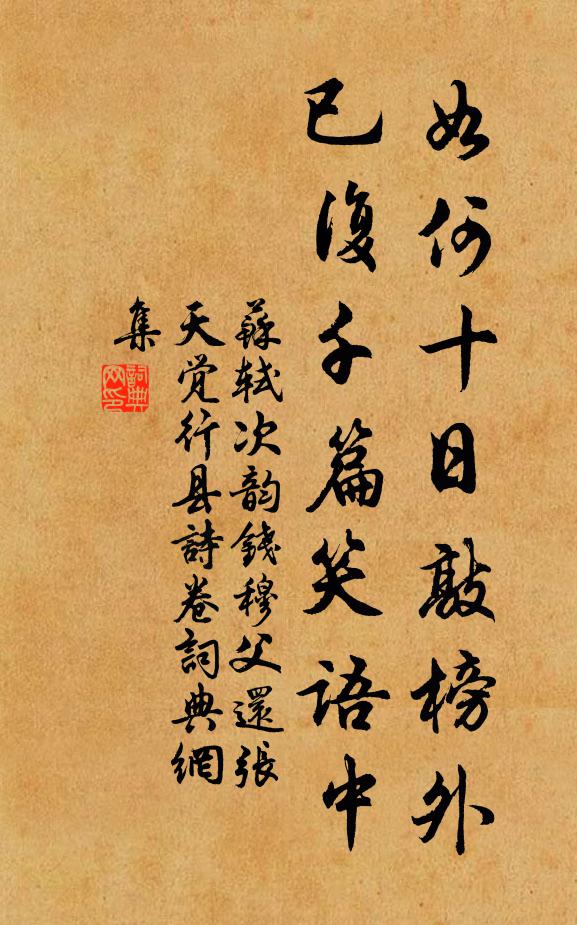 如何十日敲榜外
已復千篇笑語中
蘇軾次韵錢穆父還張
天觉行县詩卷詞典網
集
詞典網印